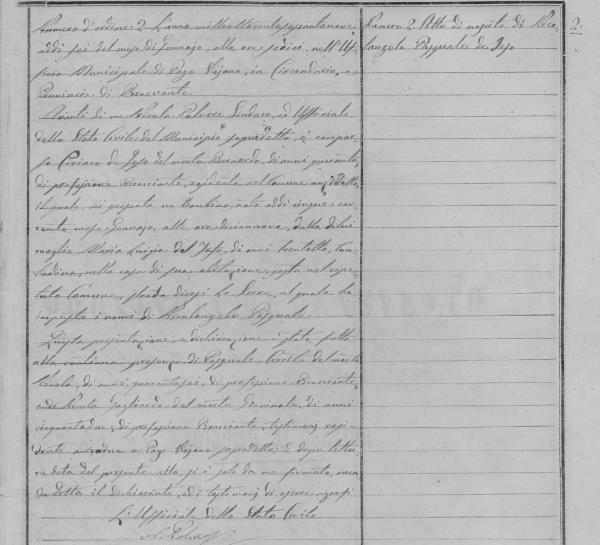 Numero d'ordine 2 L'anno milleottocentosessantanove
addì sei del mese di Gennajo, alle ore sedici, nell'Uf-
ficio Municipale di Pago Vejano, in Circondario, e
Provincia di Benevento.
Avanti di me Nicola Sindaco, ed Uffiziale
dello Stato Civile del Municipio sopradetto, è compar-
so Ciriaco de Ieso del morto Bernardo, di anni quaranta
di professione Bracciante, residente nel Comune anzidetto,
il quale mi presenta un Bambino, nato addì cinque cor-
rente mese Gennajo, alle ore diciannove, dalla di lui
moglie Maria Luigia del di anni trentotto, Con-
tadina, nella casa di sua abitazione, posta nel ripe-
tuto Comune, strada dicesi La Serra, al quale ha
imposto i nomi di Nicolangelo Pasquale
Questa presentazione, e dichiarazione è stata fatta
alla continua presenza di Pasquale del morto
Nicola, di anni quarantasei, di professione Bracciante,
e di Nicola Gagliarde del morto di anni
cinquantadue, di professione Bracciante, testimonj resi-
denti a Pago Vejano sopradetto; E dopo lettu-
ra data del presente atto, si è solo da me firmato, aven-
do detto il dichiarante, ed i testimonj di essere
L'Uffiziale dello Stato Civile
Numero 2. Atto di nascita di Nico-
langelo Pasquale de Ieso
2.